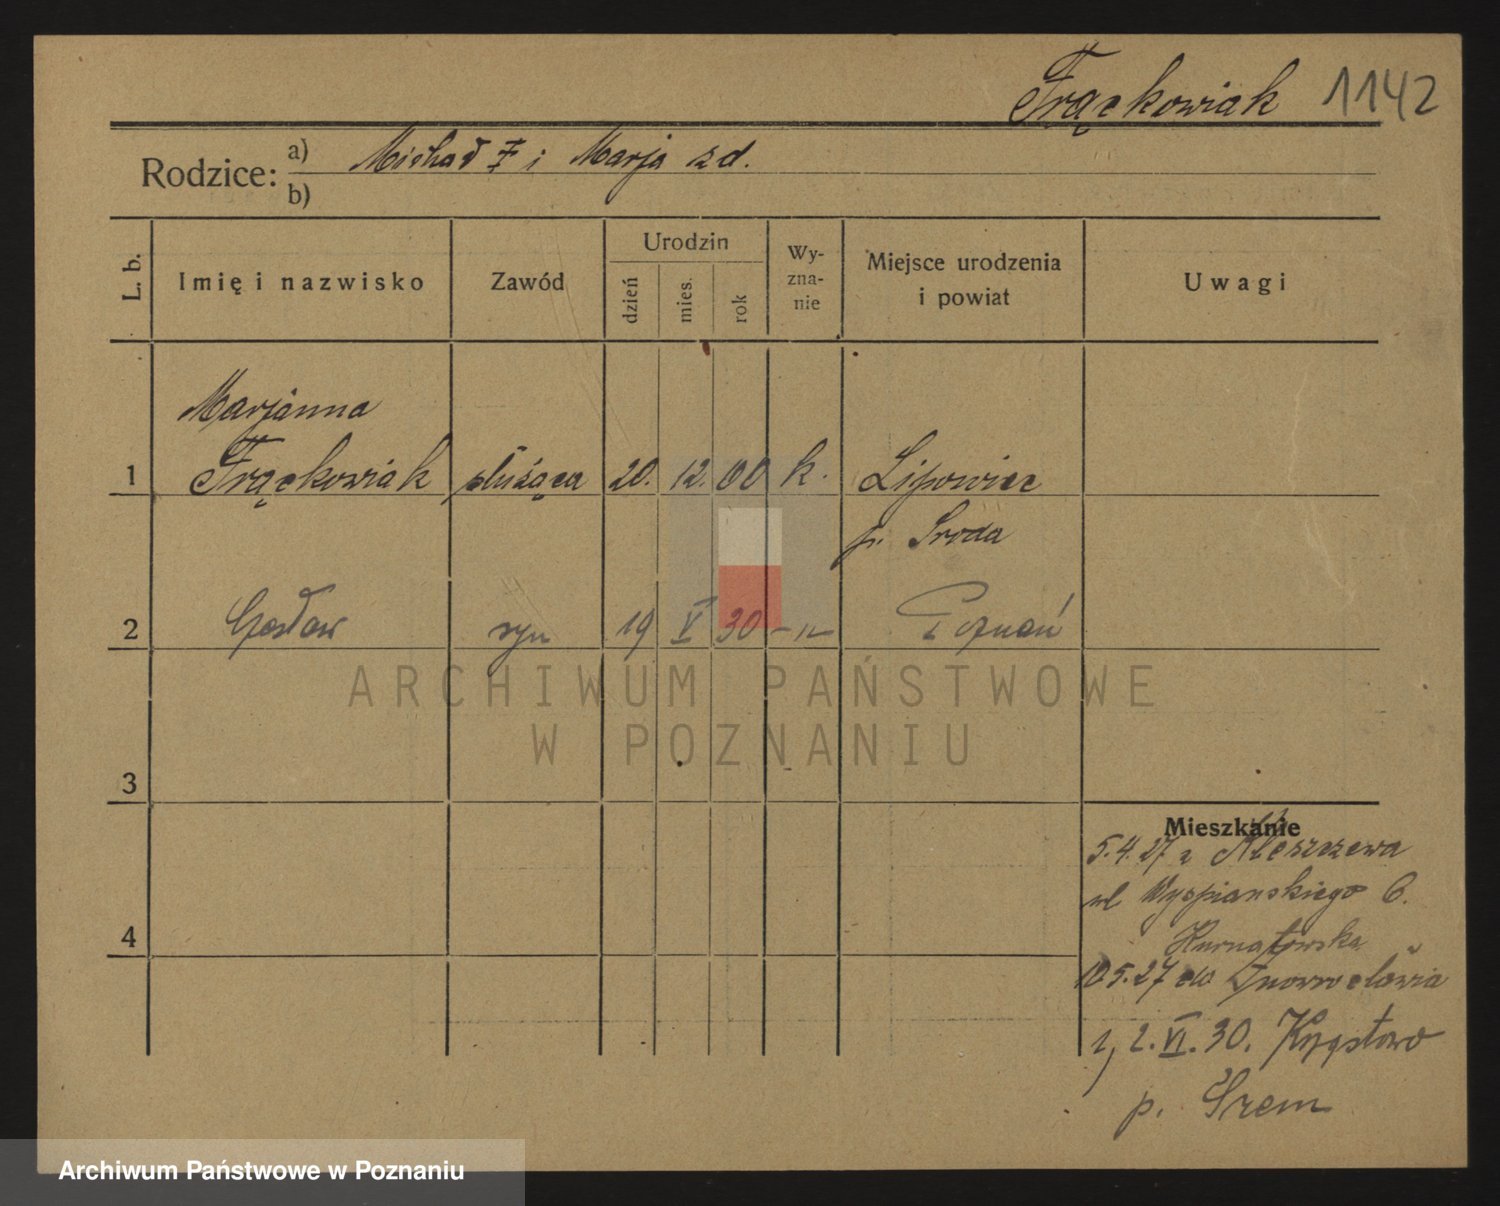 Frąckowiak 1142
Rodzice: a) Michał F i Marja zd.
b)
L. b.
Imię i nazwisko
Zawód
Urodzin
dzień
mies.
rok
Wy-
zna-
nie
Miejsce urodzenia
i powiat
Uwagi
Marjanna
1 Frąckowiak służąca 20. 12. 00 k. Lipowiec
p. Sroda
2 Czesław syn 19 V 30 -"- Poznań
ARCHIWUM PAŃSTWOWE
W POZNANIU
3
Mieszkanie
5.4.27 z Kleszczewa
ul Wyspianskiego 6.
4
Kurnatowska
10.5.27 do Inowrocławia
1, 2. VI. 30. Krzęstowo
p. Śrem
Archiwum Państwowe w Poznaniu